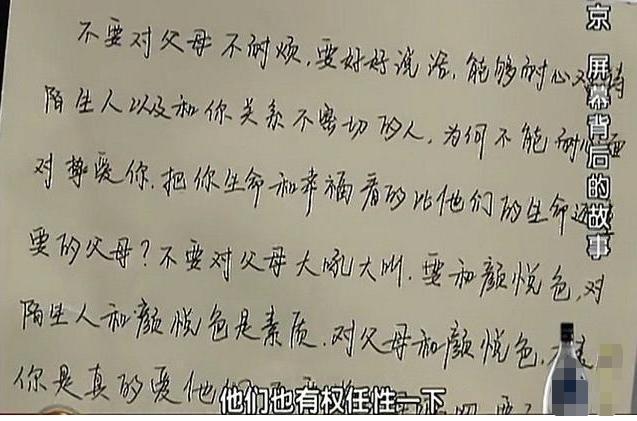 不要对父母不耐烦,要好好说话,能够耐心对待
陌生人以及和你关系不密切的人,为何不能耐心面
对挚爱你,把你生命和幸福看的比他们的生命还重
要的父母?不要对父母大吼大叫,要和颜悦色,对
陌生人和颜悦色是素质,对父母和颜悦色,
你是真的爱他们
京 屏幕背后的故事
他们也有权任性一下